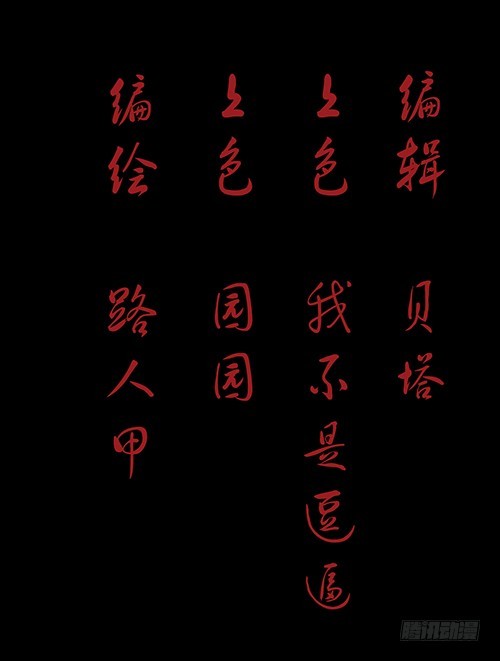 编辑 贝塔
上色 我不是逗逼
上色 园园
编绘 路人甲
腾讯动漫